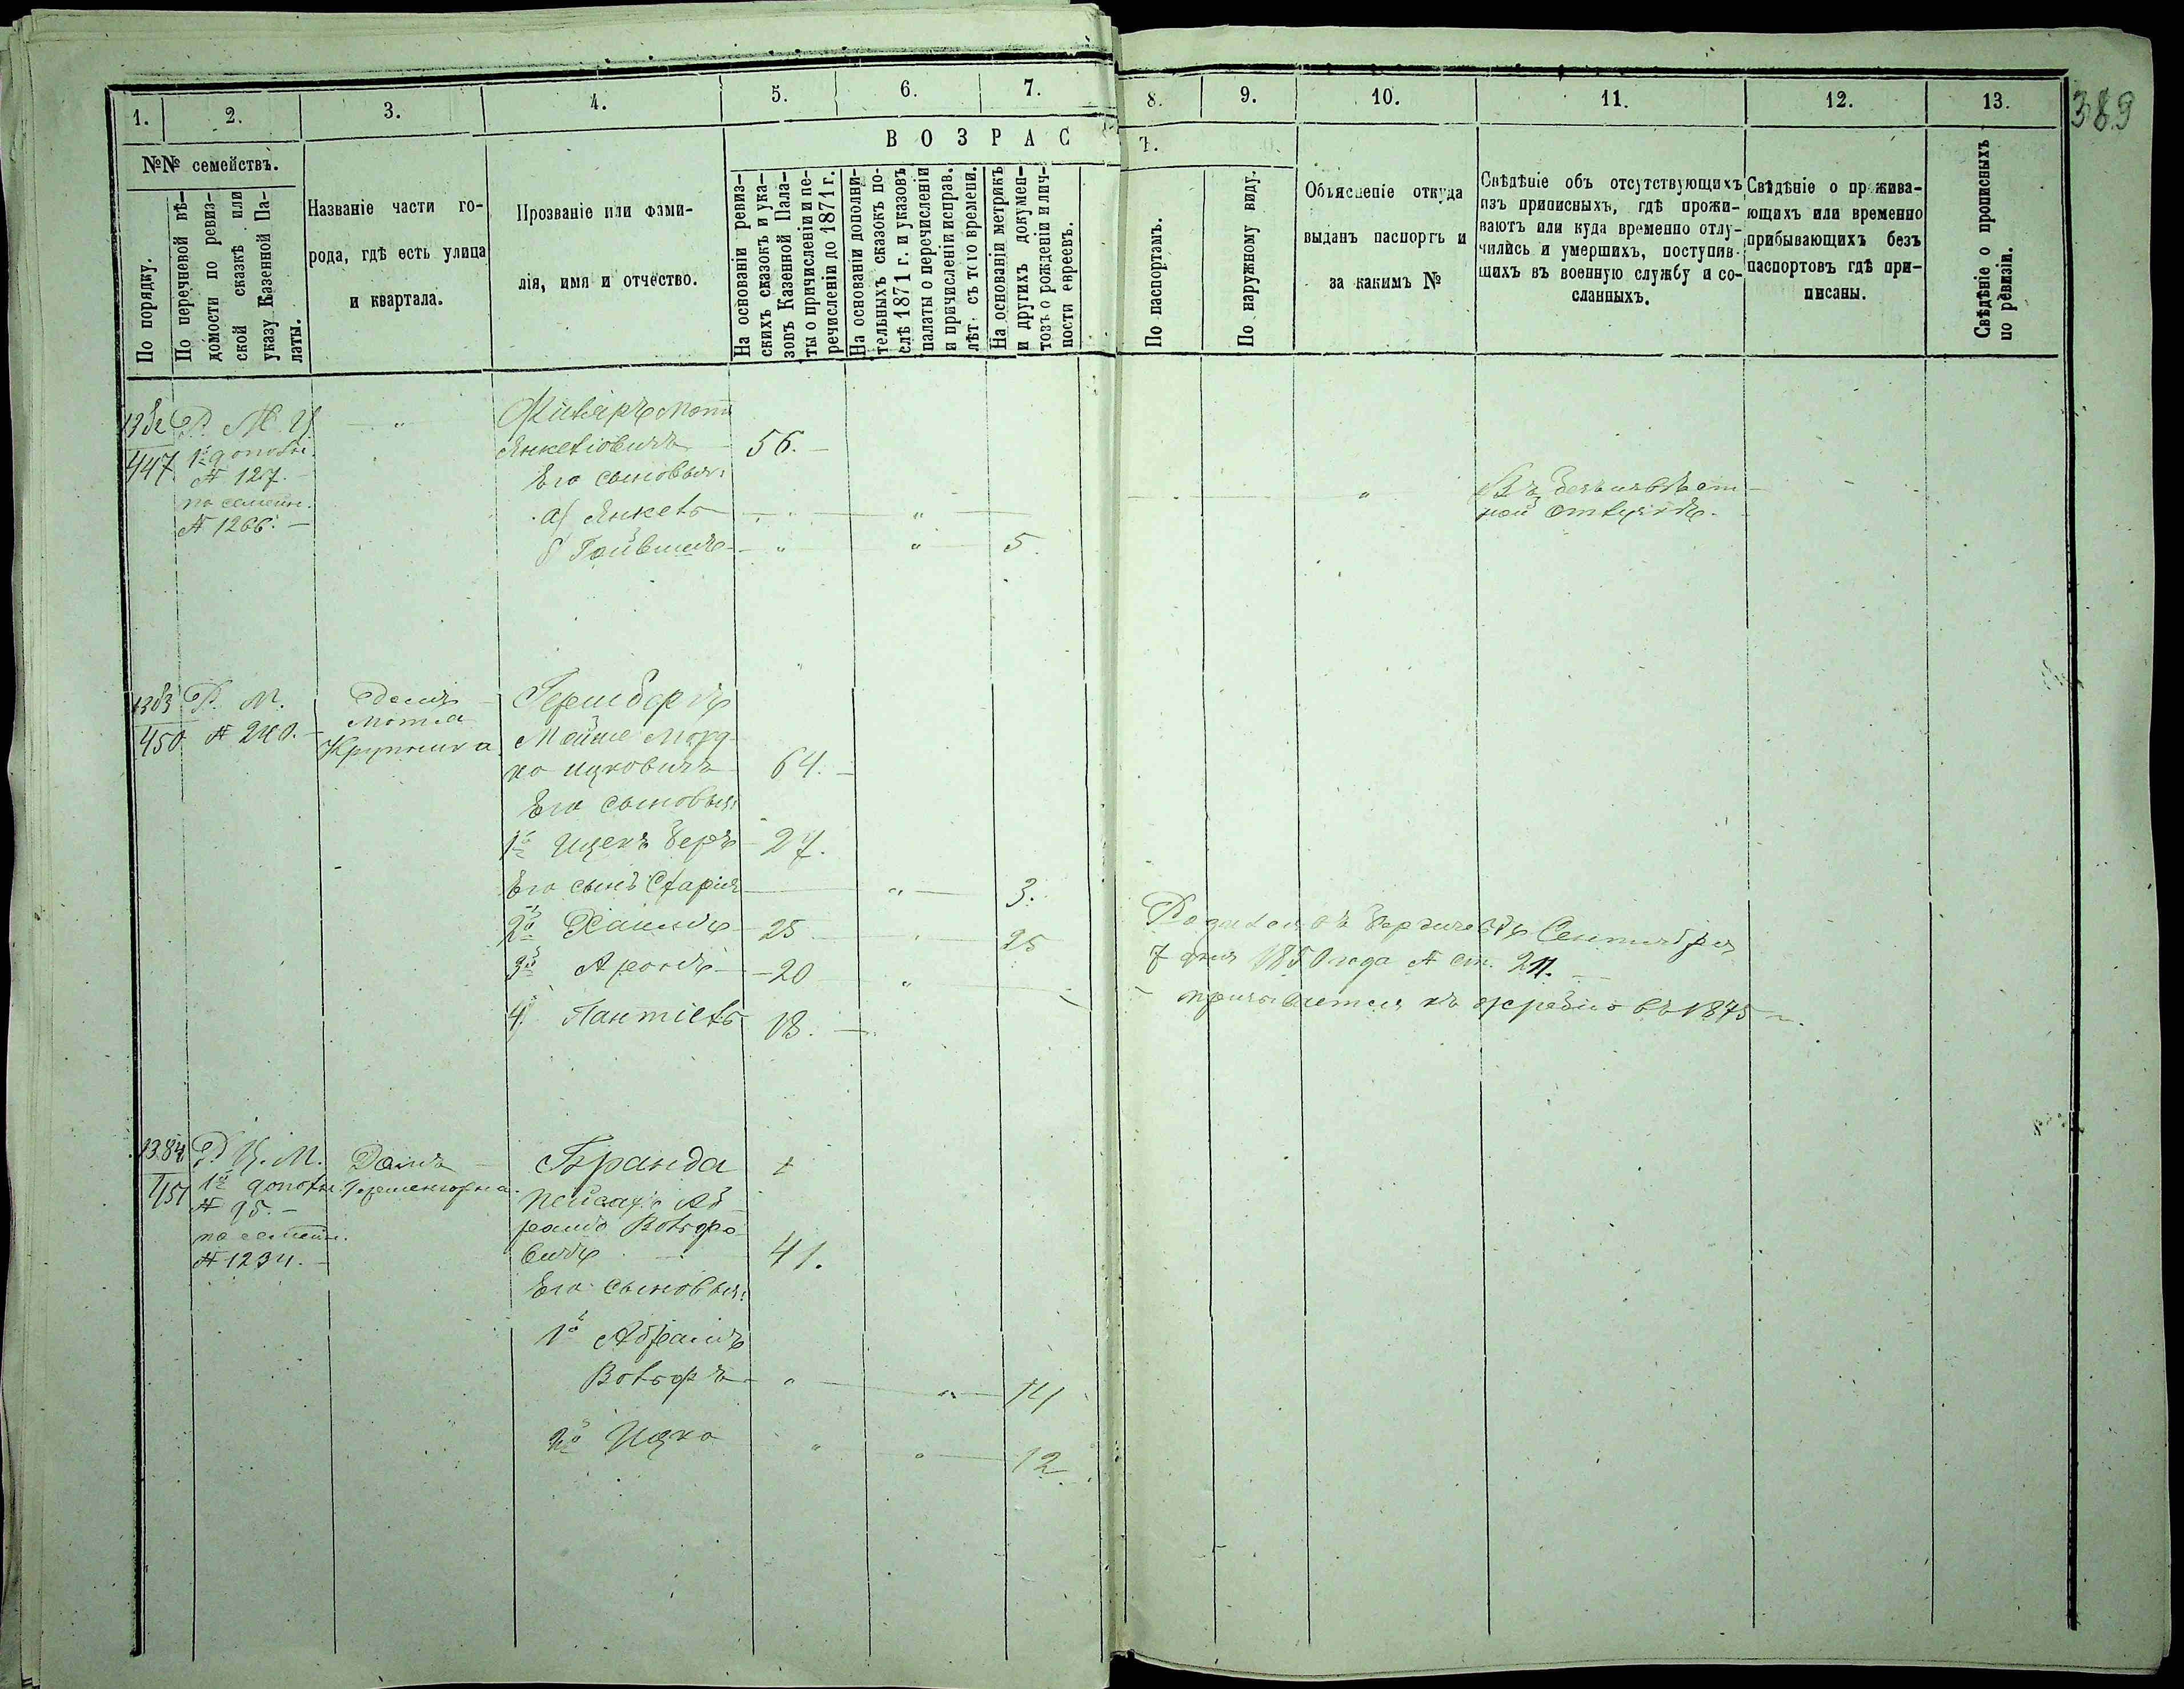 389
1. 2. 3. 4. 5. 6. 7. 8. 9. 10. 11. 12. 13.
№№ семействъ.
По порядку.
По перечневой вѣ-
домости по ревиз-
ской сказкѣ или
указу Казенной Па-
латы.
Названіе части го-
рода, гдѣ есть улица
и квартала.
Прозваніе или фами-
лія, имя и отчество.
ВОЗРАС
Т.
На основаніи ревиз-
скихъ сказокъ и ука-
зовъ Казенной Пала-
ты о причисленіи и пе-
речисленіи до 1871 г.
На основаніи дополни-
тельныхъ сказокъ по-
слѣ 1871 г. и указовъ
палаты о перечисленіи
и причисленіи исправ.
лѣт. съ того времени.
На основаніи метрикъ
и другихъ докумен-
товъ о рожденіи и лич-
ности евреевъ.
По паспортамъ.
По наружному виду.
Объясненіе откуда
выданъ паспортъ и
за какимъ №
Свѣдѣніе объ отсутствующихъ
изъ приписныхъ, гдѣ прожи-
ваютъ или куда временно отлу-
чились и умершихъ, поступив-
шихъ въ военную службу и со-
сланныхъ.
Свѣдѣніе о прожива-
ющихъ или временно
прибывающихъ безъ
паспортовъ гдѣ при-
писаны.
Свѣдѣніе о прописныхъ
по ревизіи.
1382
447
1е дополн.
№ 127.
по семейн.
№ 1266.
Мот
Янкеліовичъ 56.
Его сыновья:
а) Янкель
б) 5
Въ безъизвѣст-
ной отлучкѣ.
1383 Р. М. Домъ
450 № 240. Мотла
Крупника
Гершберъ
Мойше Морд-
ко Ицковичъ 64.
Его сыновья:
1й Ицекъ Беръ 27.
Его сынъ 3.
2й Хаимъ 25 25
Родился въ Бердичевѣ Сентября
7 дня 1850 года № ст.
3й Аронъ 20
4й Пантіель 18.
призывается къ жребію въ 1875 г.
1384 Р. К. М. Домъ
451 1е дополн. Гершенгорна
№ 95.
по семейн.
№ 1234.
Бранда
Пейсахъ Аб
рамъ Вольфо
вичъ 41.
Его сыновья:
1й Абрамъ
Вольфъ 14
2й Ицко 12